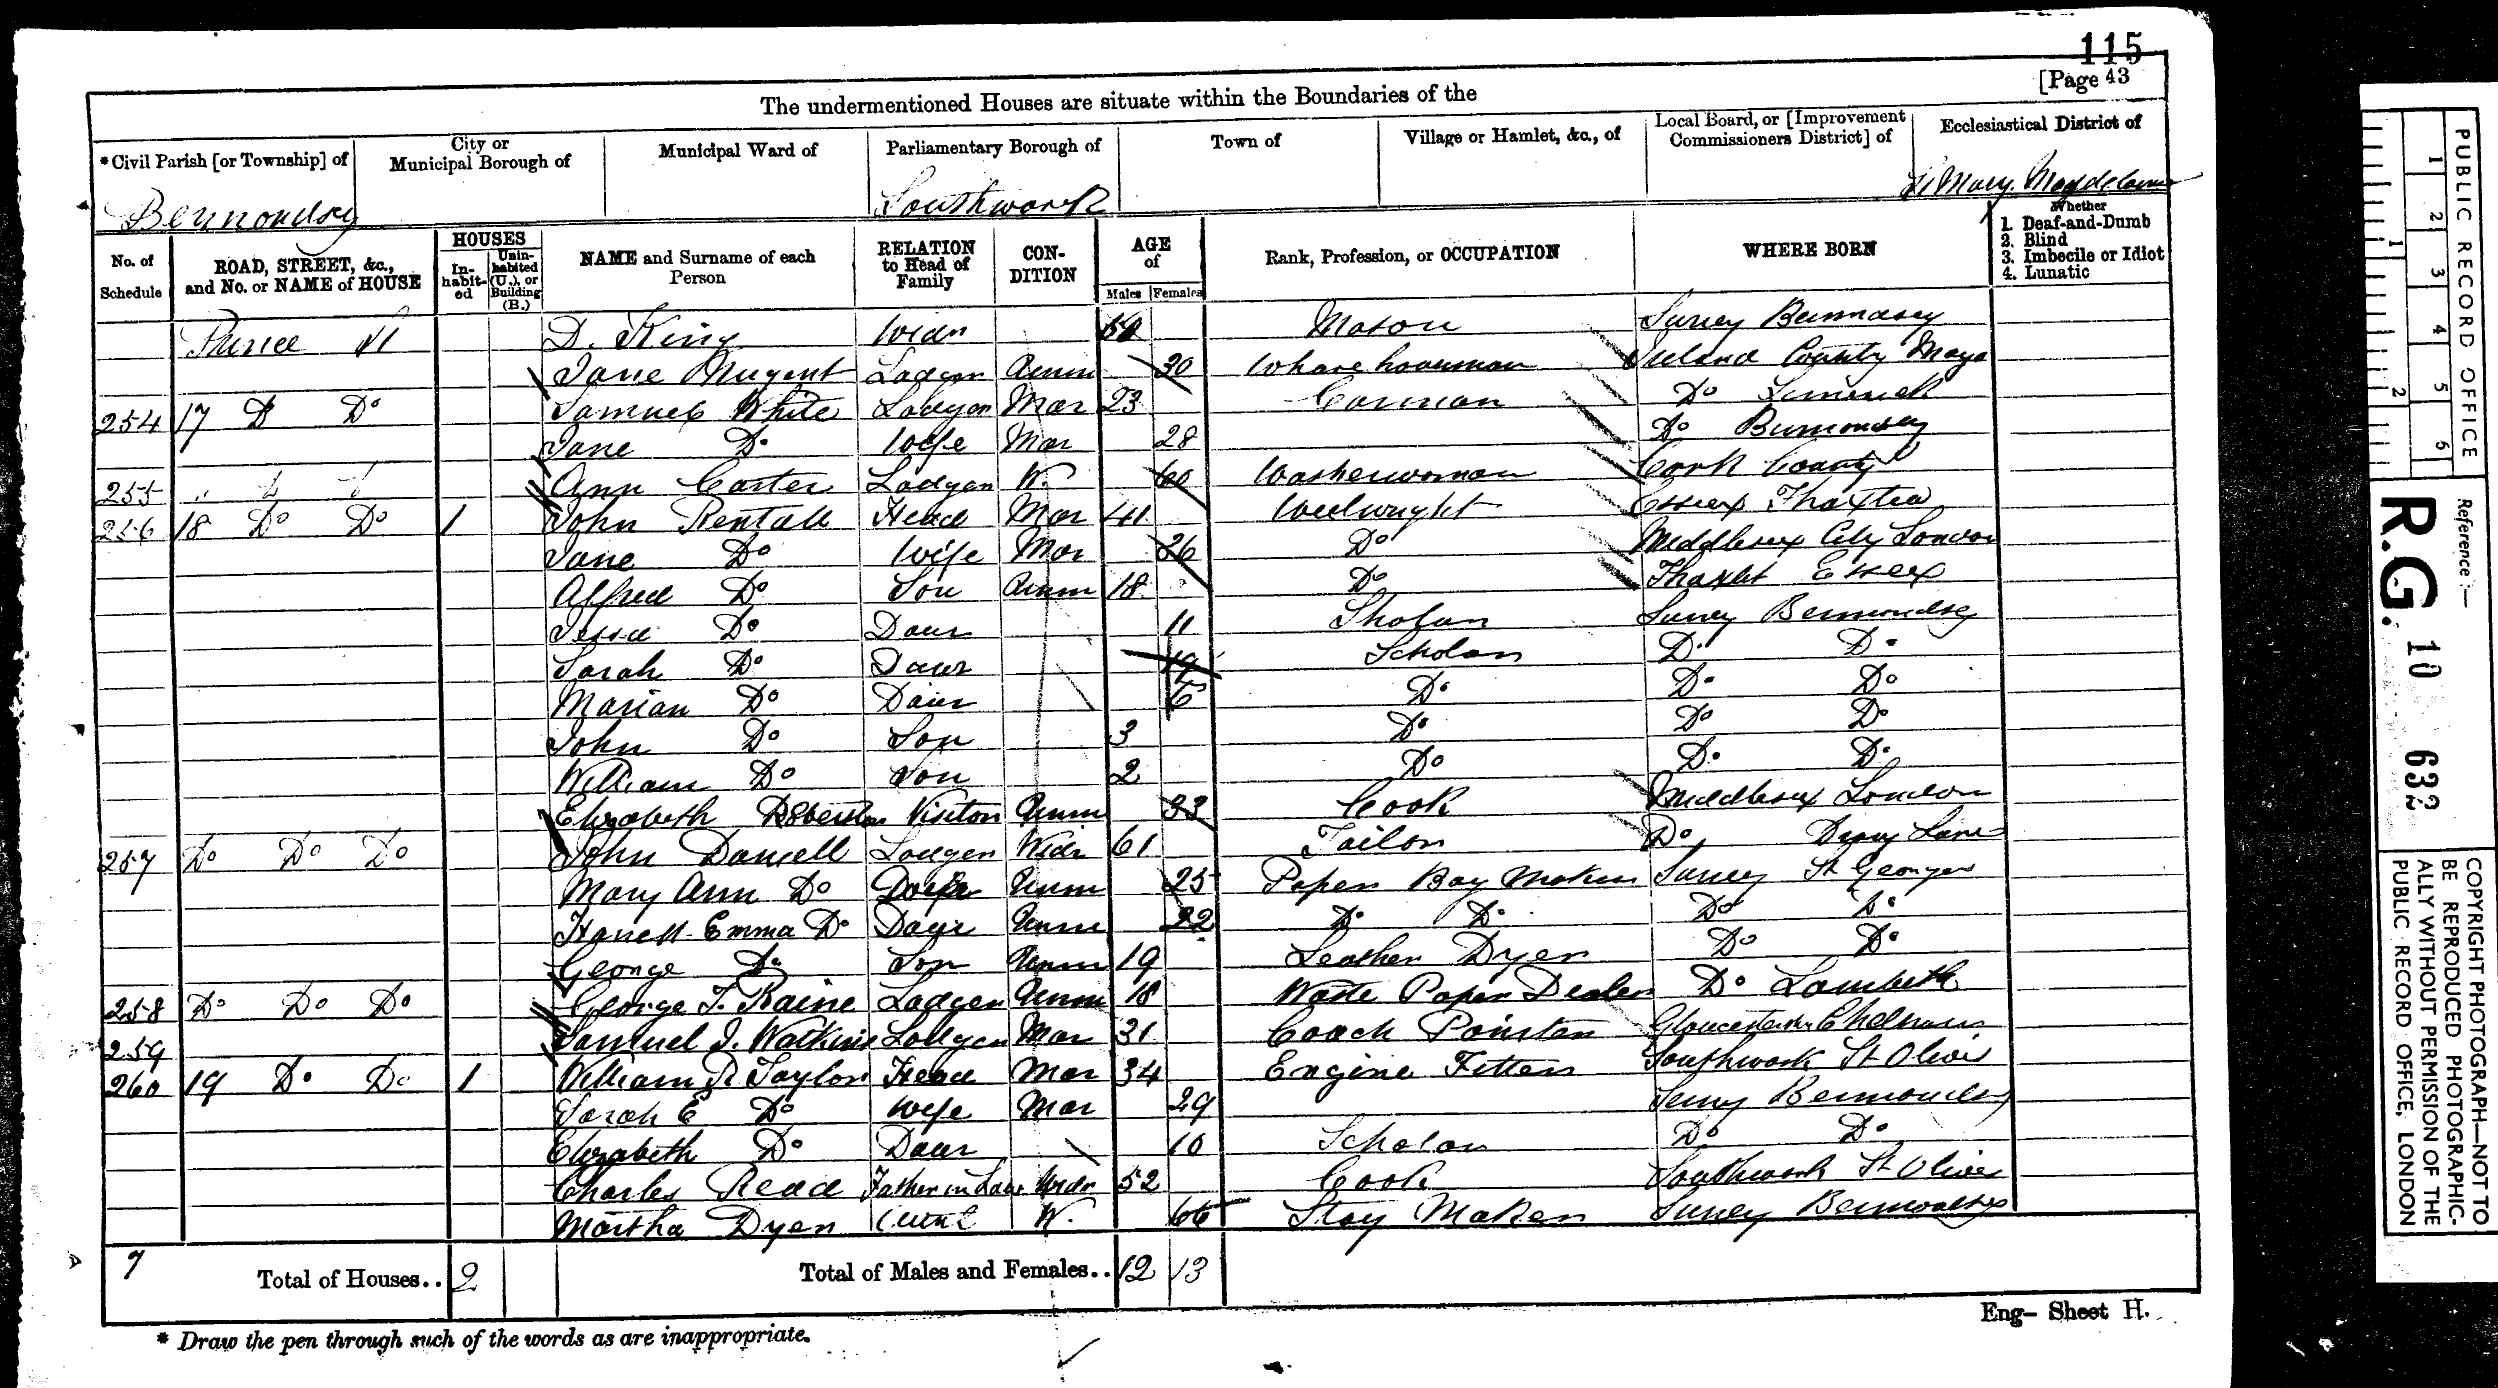 115
[Page 43
The undermentioned Houses are situate within the Boundaries of the
*Civil Parish [or Township] of
City or Municipal Borough of
Municipal Ward of
Parliamentary Borough of
Town of
Village or Hamlet, &c., of
Local Board, or [Improvement Commissioners District] of
Ecclesiastical District of
Bermondsey
Southwark
St Mary Magdelane
No. of Schedule
ROAD, STREET, &c., and No. or NAME of HOUSE
HOUSES
In-habit-ed
Unin-habited (U.), or Building (B.)
NAME and Surname of each Person
RELATION to Head of Family
CON-DITION
AGE of
Males
Females
Rank, Profession, or OCCUPATION
WHERE BORN
Whether
1. Deaf-and-Dumb
2. Blind
3. Imbecile or Idiot
4. Lunatic
St D. King Widr Mason Surrey
Jane Nugent Lodger Unm 30 Ireland County Mayo
254 17 Do Do Samuel White Lodger Mar 23 Carman Do Limerick
Jane Do Wife Mar 28 Do Bermondsey
255 Ann Carter Lodger W. 60 Washerwoman Cork County
256 18 Do Do 1 John Rentall Head Mar 41 Essex
Jane Do Wife Mar 36 Do Middlesex City London
Alfred Do Son Unm 18 Do Essex
Do Daur 11 Surrey Bermondsey
Sarah Do Daur Scholar Do Do
Marian Do Daur 6 Do Do Do
John Do Son 3 Do Do Do
William Do Son 2 Do Do Do
Elizabeth Visitor Unm 33 Cook Middlesex London
257 Do Do Do John Lodger Widr 61 Tailor Do Drury Lane
Mary Ann Do Unm 25 Paper Bag Maker Surrey St Georges
Emma Do Daur Unm 22 Do Do Do Do
George Do Son Unm 19 Leather Dyer Do Do
258 Do Do Do George T. Raine Lodger Unm 18 Waste Paper Dealer Do Lambeth
259 Samuel J. Watkins Lodger Mar 31 Coach
260 19 Do Do 1 William R Taylor Head Mar 34 Engine Fitter Southwark St Olives
Sarah E Do Wife Mar 29 Bermondsey
Elizabeth Do Daur 10 Scholar Do Do
Charles Read Father in Law Widr 52 Cook Southwark St Olives
Martha Dyer Aunt W. 66 Stay Maker Surrey Bermondsey
7
Total of Houses.. 2
Total of Males and Females.. 12 13
Eng- Sheet H.
* Draw the pen through such of the words as are inappropriate.
PUBLIC RECORD OFFICE
1 2 3 4 5 6
1 2
Reference:-
R.G. 10 632
COPYRIGHT PHOTOGRAPH—NOT TO
BE REPRODUCED PHOTOGRAPHIC-
ALLY WITHOUT PERMISSION OF THE
PUBLIC RECORD OFFICE, LONDON